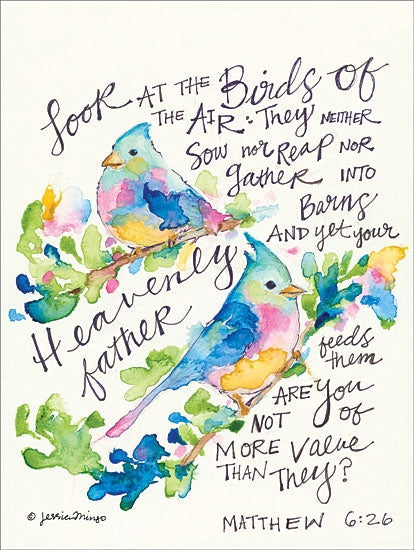 Look AT THE Birds OF
THE AIR: They NEITHER
Sow nor Reap NOR
gather INTO
Barns
AND yet your
Heavenly
father
feeds
them
ARE you
NOT of
MORE Value
THAN They?
MATTHEW 6:26
© Jessica Mingo